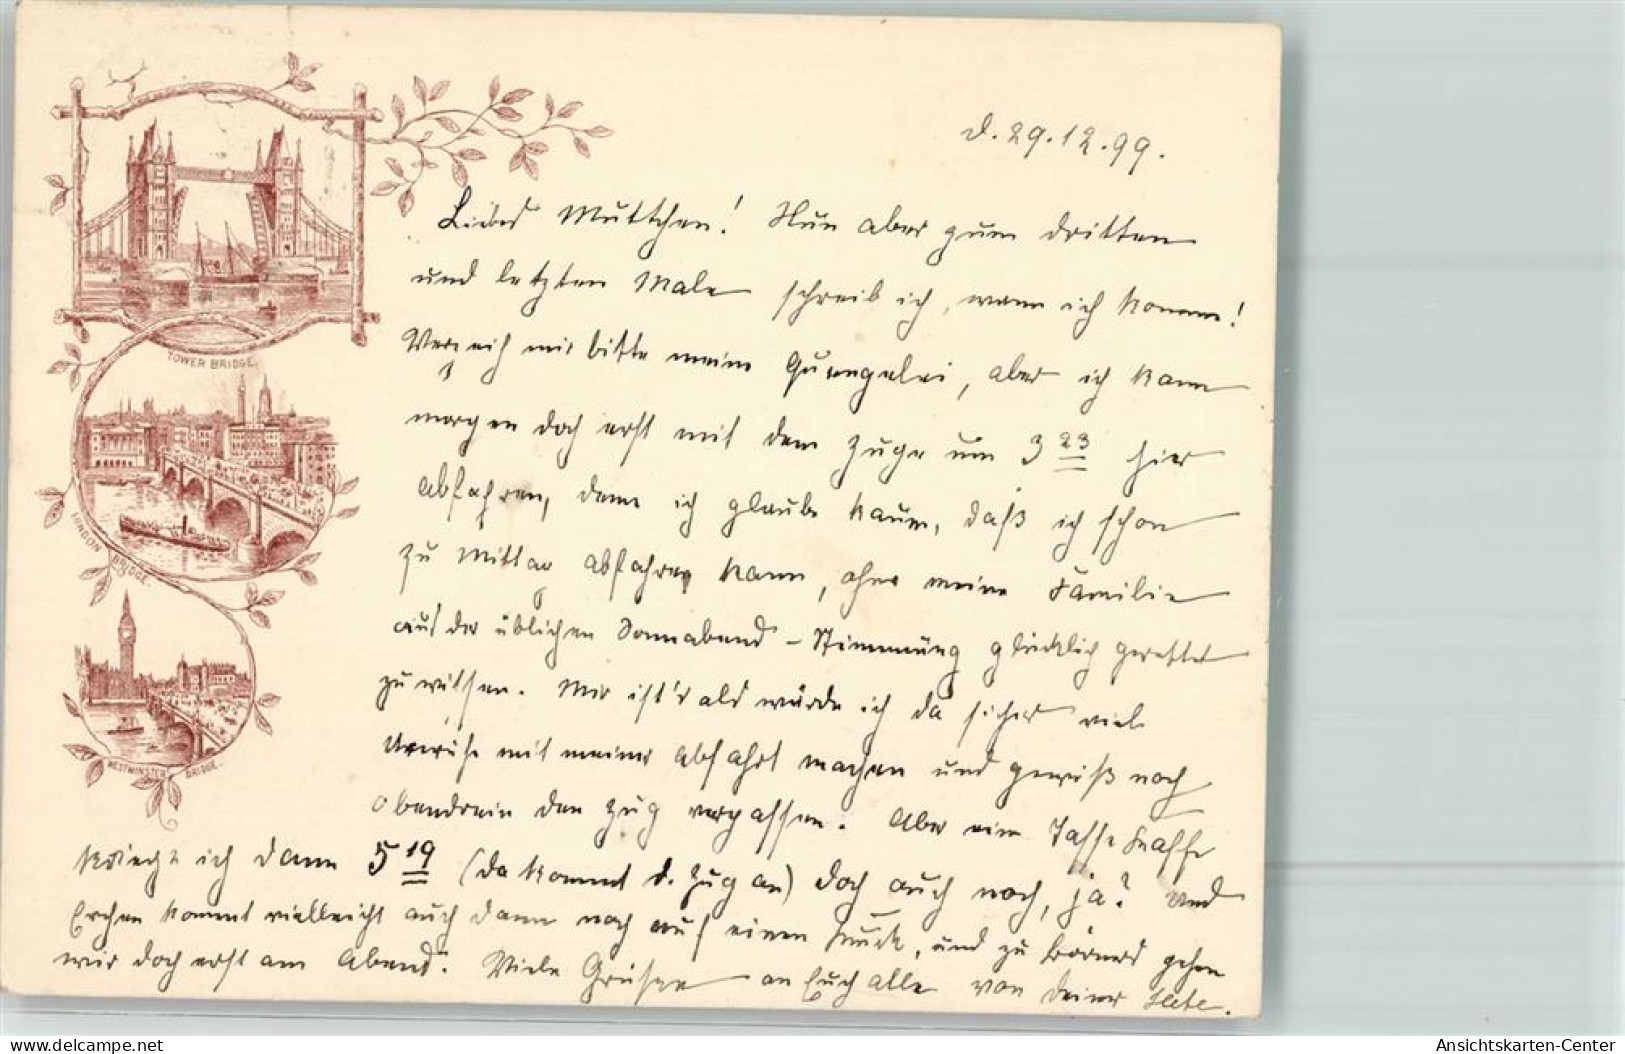 d. 29.12.99.
Liebes Muttchen! Nun aber zum dritten
und letzten Male schreib ich, wann ich komme!
Verzeih mir bitte meine Quengelei, aber ich kann
morgen doch erst mit dem Zuge um 3 23 hier
abfahren, denn ich glaube kaum, daß ich schon
zu Mittag abfahren kann, ohne meine Familie
aus der üblichen Sonnabend-Stimmung glücklich gerettet
zu wissen. Mir ist's als würde ich da sicher viel
Unruhe mit meiner Abfahrt machen und gewiß noch
obendrein den Zug verpassen. Aber eine Tasse Kaffe
kriege ich dann 5 19 (da kommt d. Zug an) doch auch noch, ja? Und
kommt vielleicht auch dann noch auf einen, und zu gehen
wir doch erst am Abend. Viele Grüße an Euch alle von Deiner
TOWER BRIDGE.
LONDON BRIDGE.
WESTMINSTER BRIDGE.
www.delcampe.net
Ansichtskarten-Center